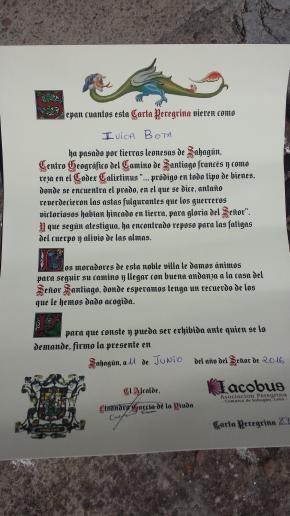 Sepan cuantos esta Carta Peregrina vieren como
Ivica Bota
ha pasado por tierras leonesas de Sahagún,
Centro Geográfico del Camino de Santiago francés y como
reza en el Codex Calixtinus "... pródigo en todo tipo de bienes,
donde se encuentra el prado, en el que se dice, antaño
reverdecieron las astas fulgurantes que los guerreros
victoriosos habían hincado en tierra, para gloria del Señor".
Y que según atestigua, ha encontrado reposo para las fatigas
del cuerpo y alivio de las almas.
Los moradores de esta noble villa le damos ánimos
para seguir su camino y llegar con buena andanza a la casa del
Señor Santiago, donde esperamos tenga un recuerdo de los
que le hemos dado acogida.
Y para que conste y pueda ser exhibida ante quien se lo
demande, firmo la presente en
Sahagún, a 11 de JUNIO del año del Señor de 2016
El Alcalde,
Lisandro García de la Viuda
Iacobus
Asociación Peregrina
Comarca de Sahagún, León
Carta Peregrina